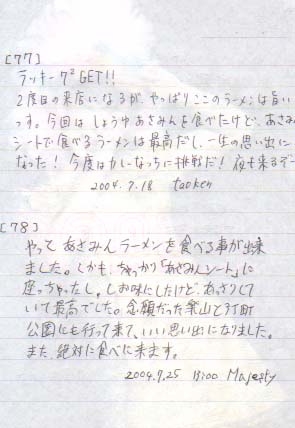 [77]
ラッキー7² GET!!
2度目の来店になるが、やっぱりここのラーメンは旨い
っす。今回はしょうゆあさみんを食べたけど、あさみ
シートで食べるラーメンは最高だし、一生の思い出に
なった！今度はカレーなっちに挑戦だ！夜も来るぞー
2004.9.18 taoken
[78]
やっと あさみんラーメンを食べる事が出来
ました。しかも、ちゃっかり「あさみんシート」に
座っちゃったし、しお味にしたけど、あっさりして
いて最高でした。念願だった
公園にも行って来て、いい思い出になりました。
また、絶対に食べに来ます。
2004.9.25 Bioo Majesty